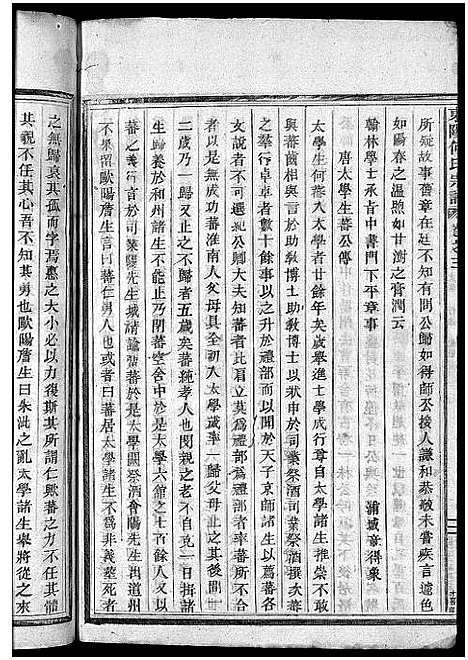 東陽何氏宗譜
所疑故事舊章在廷不知有問公歸如得師公接人謙和恭敬未嘗疾言遽色
如陽春之溫煦如甘澍之膏潤云
翰林學士承旨中書門下平章事 浦城章得象
唐太學生蕃公傳
太學生何蕃入太學者廿餘年矣歲舉進士學成行尊自太學諸生推崇不敢
與蕃齒相與言於助教博士助教博士以狀申於司業祭酒司業祭酒撰次蕃
之羣行卓卓者數十餘事以之升於禮部而以聞於天子京師諸生以薦蕃名
文說者不可選紀公卿大夫知蕃者比肩立莫為禮部為禮部者率蕃所不合者
是以無成功蕃淮南人父母具全初入太學歲率一歸父母止之其後間一
二歲乃一歸又止之不歸者五歲矣蕃純孝人也閔親之老不自克一日揖諸
生歸養於和州諸生不能止乃閉蕃空舍中於是太學六館之士百餘人又以
蕃之義行言於司業陽先生城請諭留蕃於是太學闕祭酒會陽先生出道州
不果留歐陽詹生言曰蕃仁勇人也或者曰蕃居太學諸生不為非義葬死者
之無歸哀其孤而字焉惠之大小必以力復斯其所謂仁歟蕃之力不任其體
其貌不任其心吾不知其勇也歐陽詹生曰朱泚之亂太學諸生舉將從之來